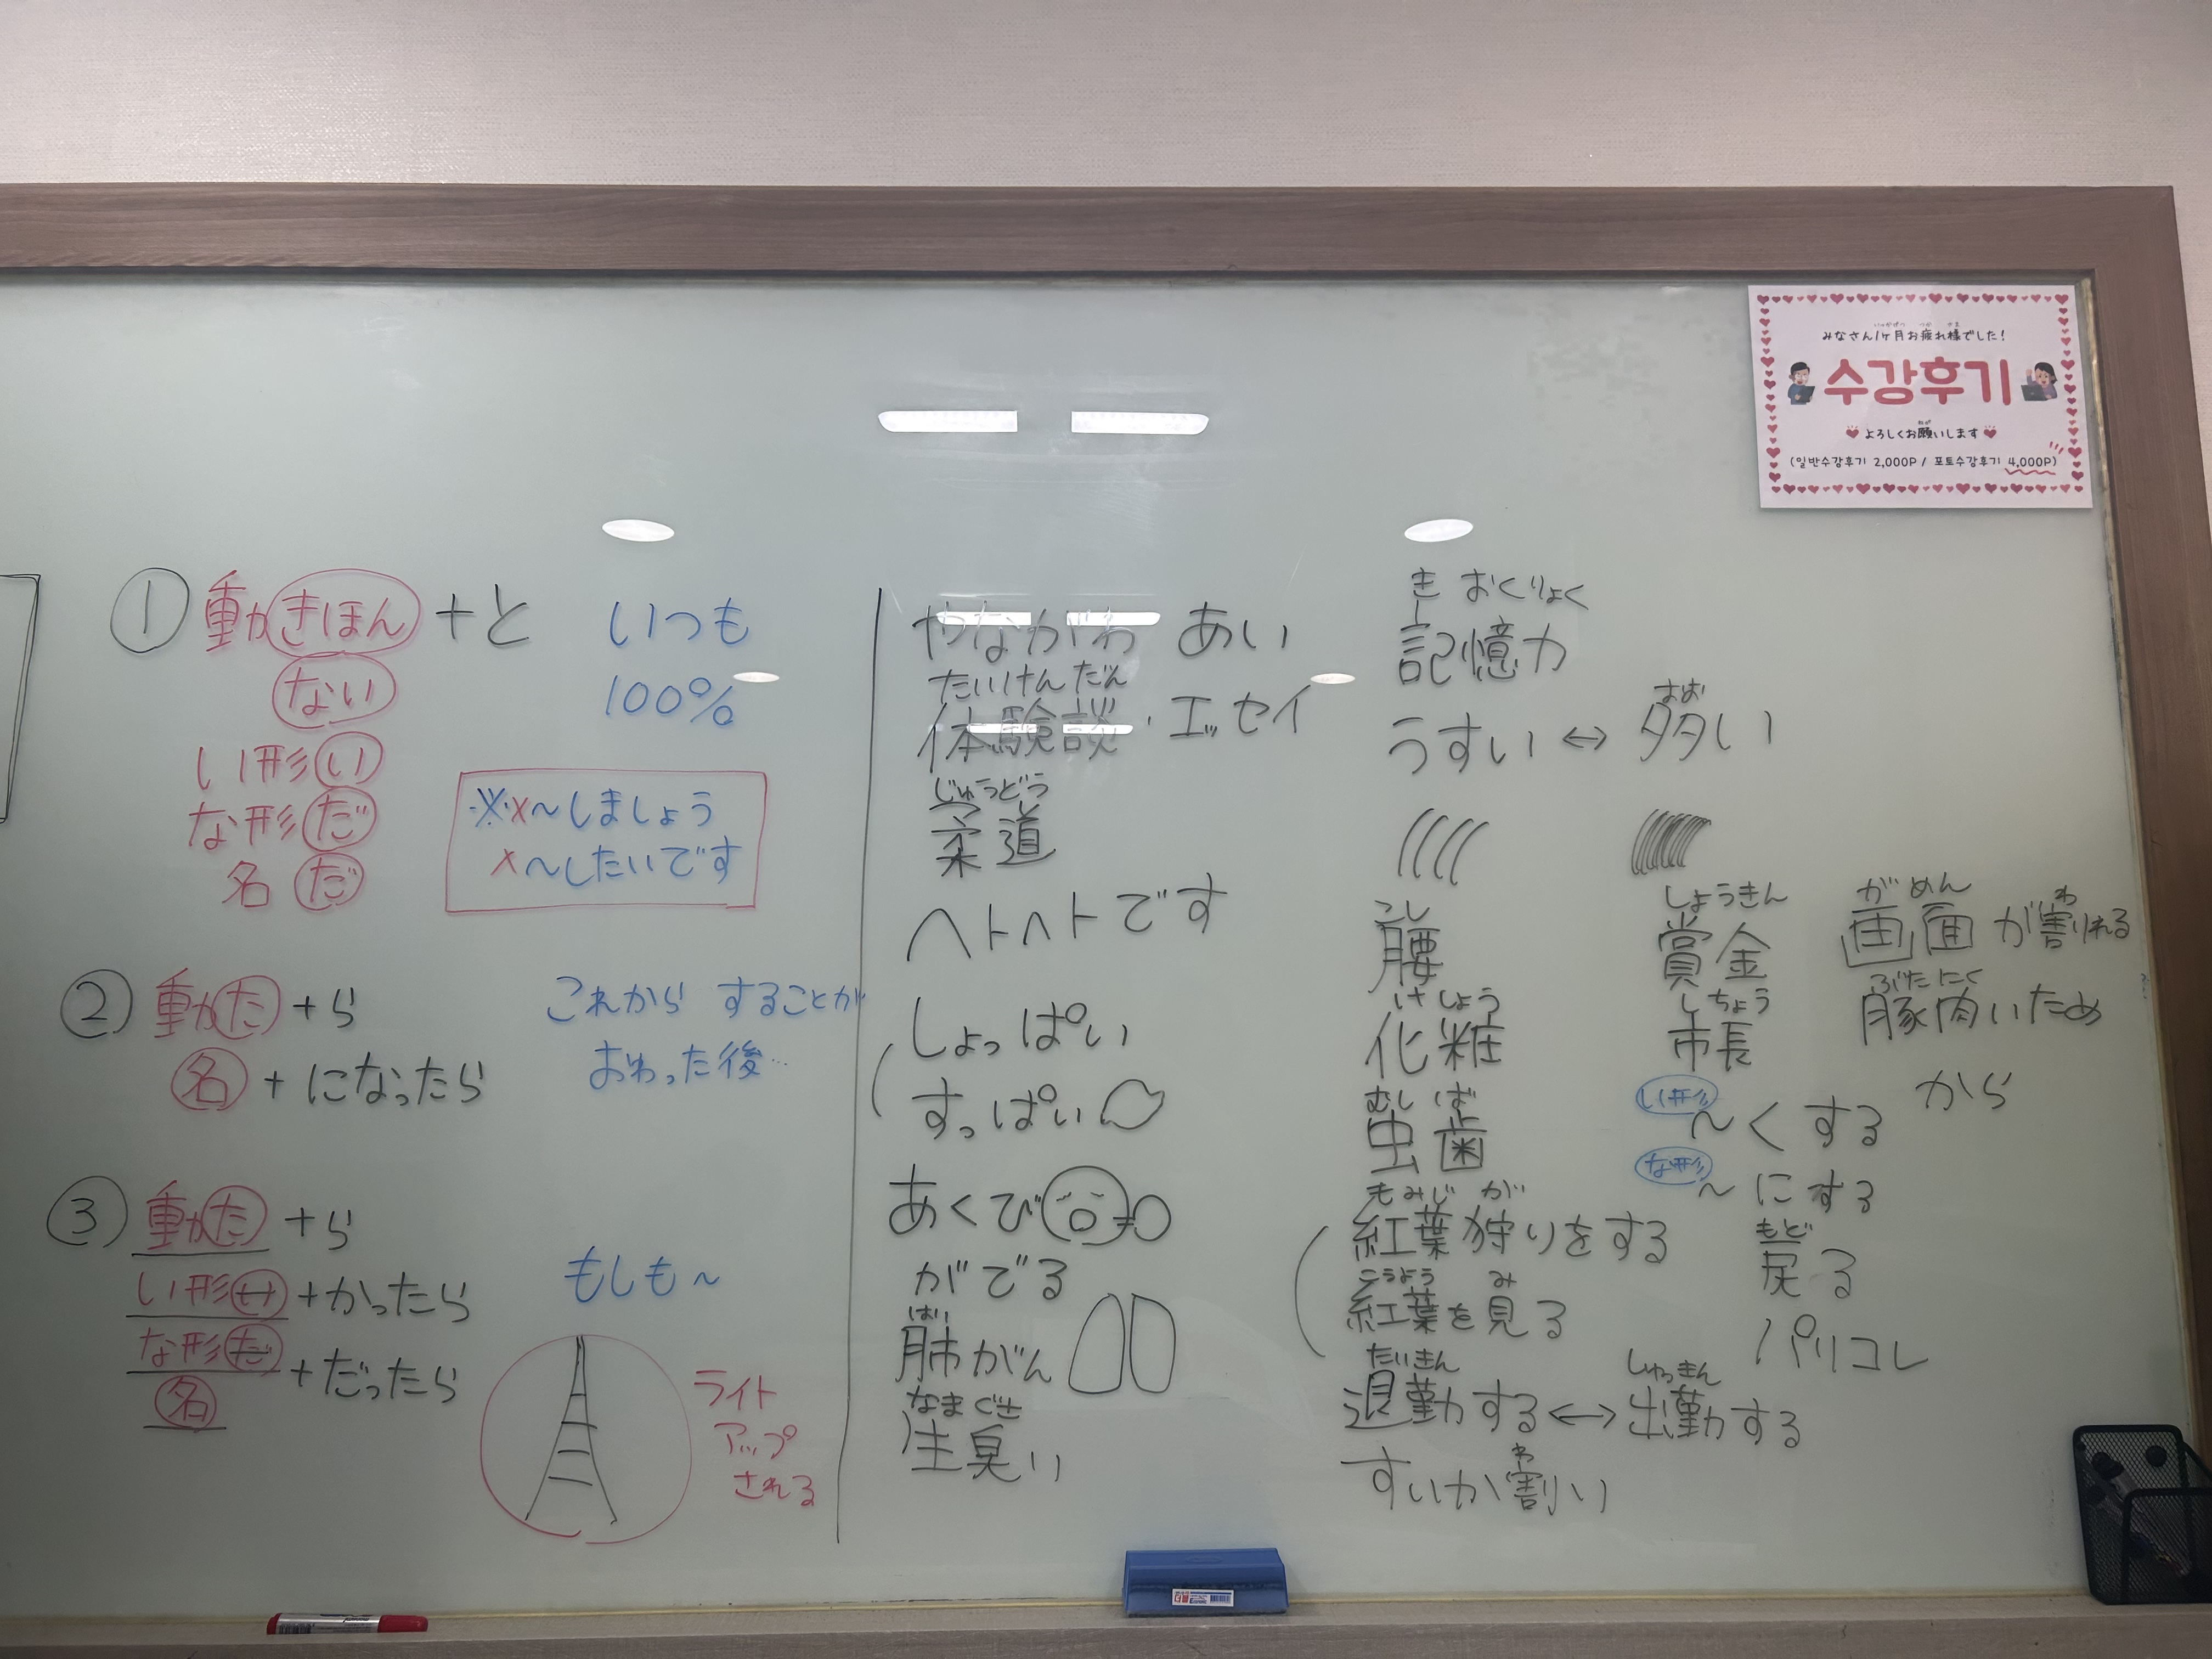 みなさん1ヶ月お疲れ様でした!
수강후기
よろしくお願いします
(일반수강후기 2,000P / 포토수강후기 4,000P)
① 動きほん + と いつも
ない 100%
い形い
な形だ
名だ
※×〜しましょう
×〜したいです
② 動た + ら これから することが
名 + になったら おわった後…
③ 動た + ら
い形い + かったら もしも〜
な形だ + だったら
名
ライト
アップ
される
やながわ あい
たいけんだん
体験談・エッセイ
じゅうどう
柔道
ヘトヘトです
しょっぱい
すっぱい
あくび
がでる
はい
肺がん
なまぐさ
生臭い
きおくりょく
記憶力
おお
うすい ↔ 多い
こし
腰
けしょう
化粧
むしば
虫歯
もみじが
紅葉狩りをする
こうよう み
紅葉を見る
たいきん しゅっきん
退勤する ↔ 出勤する
わ
すいか割い
しょうきん
賞金
しちょう
市長
い形 〜くする
な形 〜にする
もど
戻る
パリコレ
がめん わ
画面が割れる
ぶたにく
豚肉いため
から